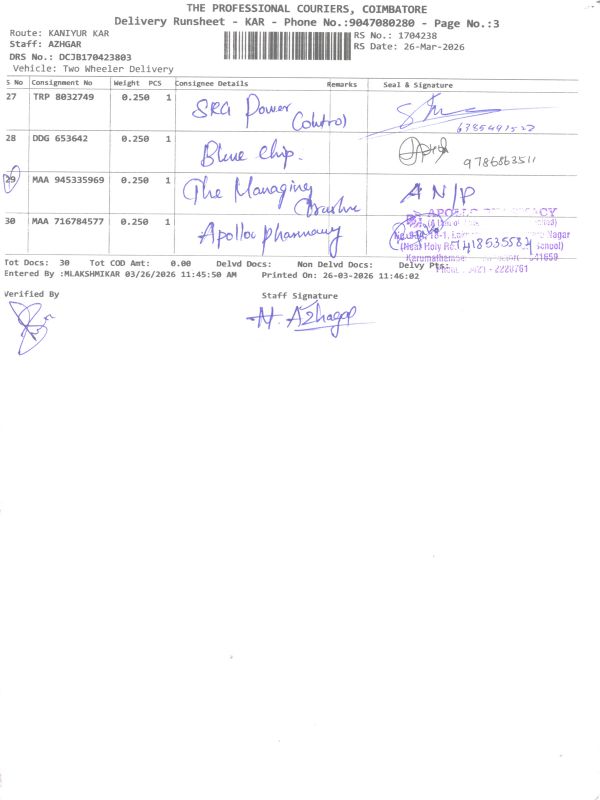 THE PROFESSIONAL COURIERS, COIMBATORE
Delivery Runsheet - KAR - Phone No.:9047080280 - Page No.:3
Route: KANIYUR KAR
RS No.: 1704238
Staff: AZHGAR
RS Date: 26-Mar-2026
DRS No.: DCJB170423803
Vehicle: Two Wheeler Delivery
S No Consignment No Weight PCS Consignee Details Remarks Seal & Signature
27 TRP 8032749 0.250 1 SRG Power Control
28 DDG 653642 0.250 1 Blue chip. 9786863511
29 MAA 945335969 0.250 1 The Managing A N/P
30 MAA 716784577 0.250 1 Apollo pharmacy 7418535584
APOLLO
(Near Holy School)
641659
Phone : 0421 - 2220761
Tot Docs: 30 Tot COD Amt: 0.00 Delvd Docs: Non Delvd Docs: Delvy Pts:
Entered By :MLAKSHMIKAR 03/26/2026 11:45:50 AM Printed On: 26-03-2026 11:46:02
Verified By
Staff Signature